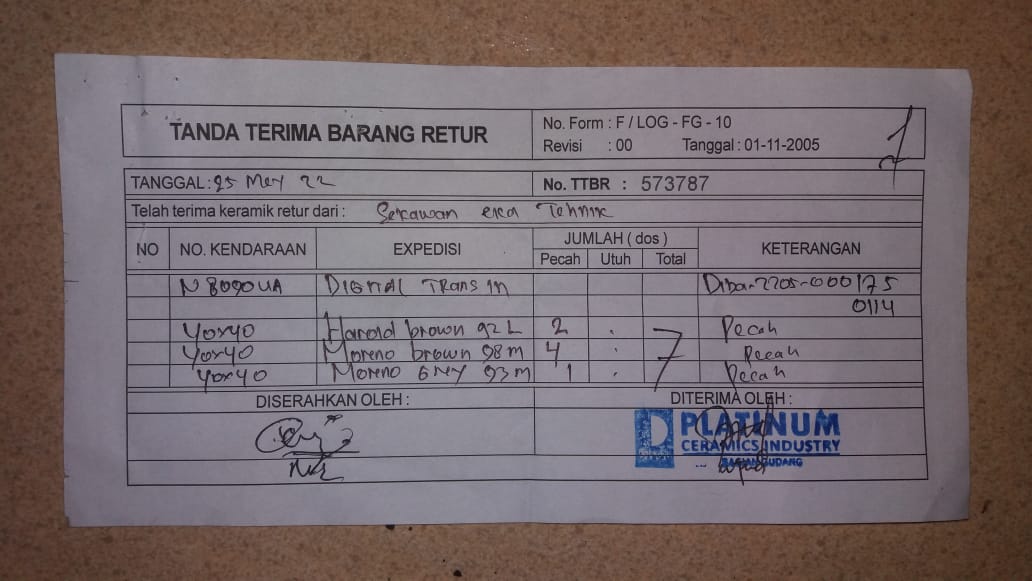 TANDA TERIMA BARANG RETUR
No. Form : F / LOG - FG - 10
Revisi : 00 Tanggal : 01-11-2005
TANGGAL : 25 Mey 22 No. TTBR : 573787
Telah terima keramik retur dari : Sekawan eka Tehnik
NO NO. KENDARAAN EXPEDISI JUMLAH ( dos ) KETERANGAN
Pecah Utuh Total
N 8090 UA DIGITAL TRANS IN
0114
40x40 Harold brown 92 L 2 Pecah
40x40 Moreno brown 98 m 4 7 Pecah
40x40 Moreno GREY 93 m 1 Pecah
DISERAHKAN OLEH : DITERIMA OLEH :
PLATINUM
CERAMICS INDUSTRY
BAGIAN GUDANG